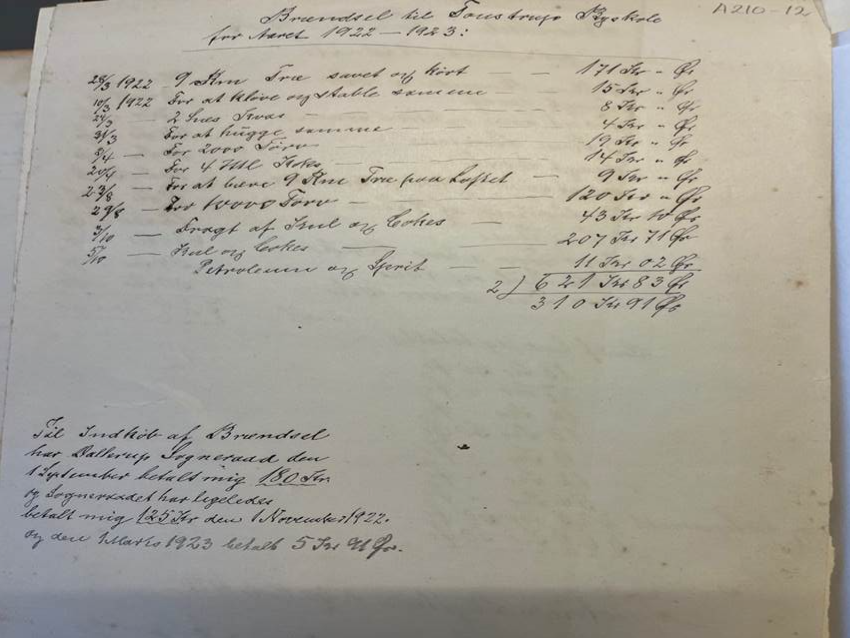 A210-12
Brændsel til Toustrup Byskole
for Aaret 1922 – 1923:
28/3 1922 9 Km Træ savet og kørt — — 171 Kr " Ør
10/3 1922 For at kløve og stable samme — — 15 Kr " Ør
24/3 — 2 Læs Kvas — — 8 Kr " Ør
31/3 — For at hugge samme — 4 Kr " Ør
8/4 — For 2000 Tørv — 19 Kr " Ør
20/4 — For 4 Htl Kokes — 14 Kr " Ør
23/8 — For at bære 9 Km Træ paa Loftet — 9 Kr " Ør
29/8 — For 10000 Tørv — — 120 Kr " Ør
3/10 — Fragt af Kul og Cokes — 43 Kr 10 Ør
5/10 — Kul og Cokes — 207 Kr 71 Ør
Petroleum og Sprit — — 11 Kr 02 Ør
2 ) 621 Kr 83 Ør
310 Kr 91 Ør
Til Indkøb af Brændsel
har Dallerup Sogneraad den
1 September betalt mig 180 Kr.
og Sogneraadet har ligeledes
betalt mig 125 Kr den 1 November 1922.
og den 1 Marts 1923 betalt 5 Kr 91 Ør.